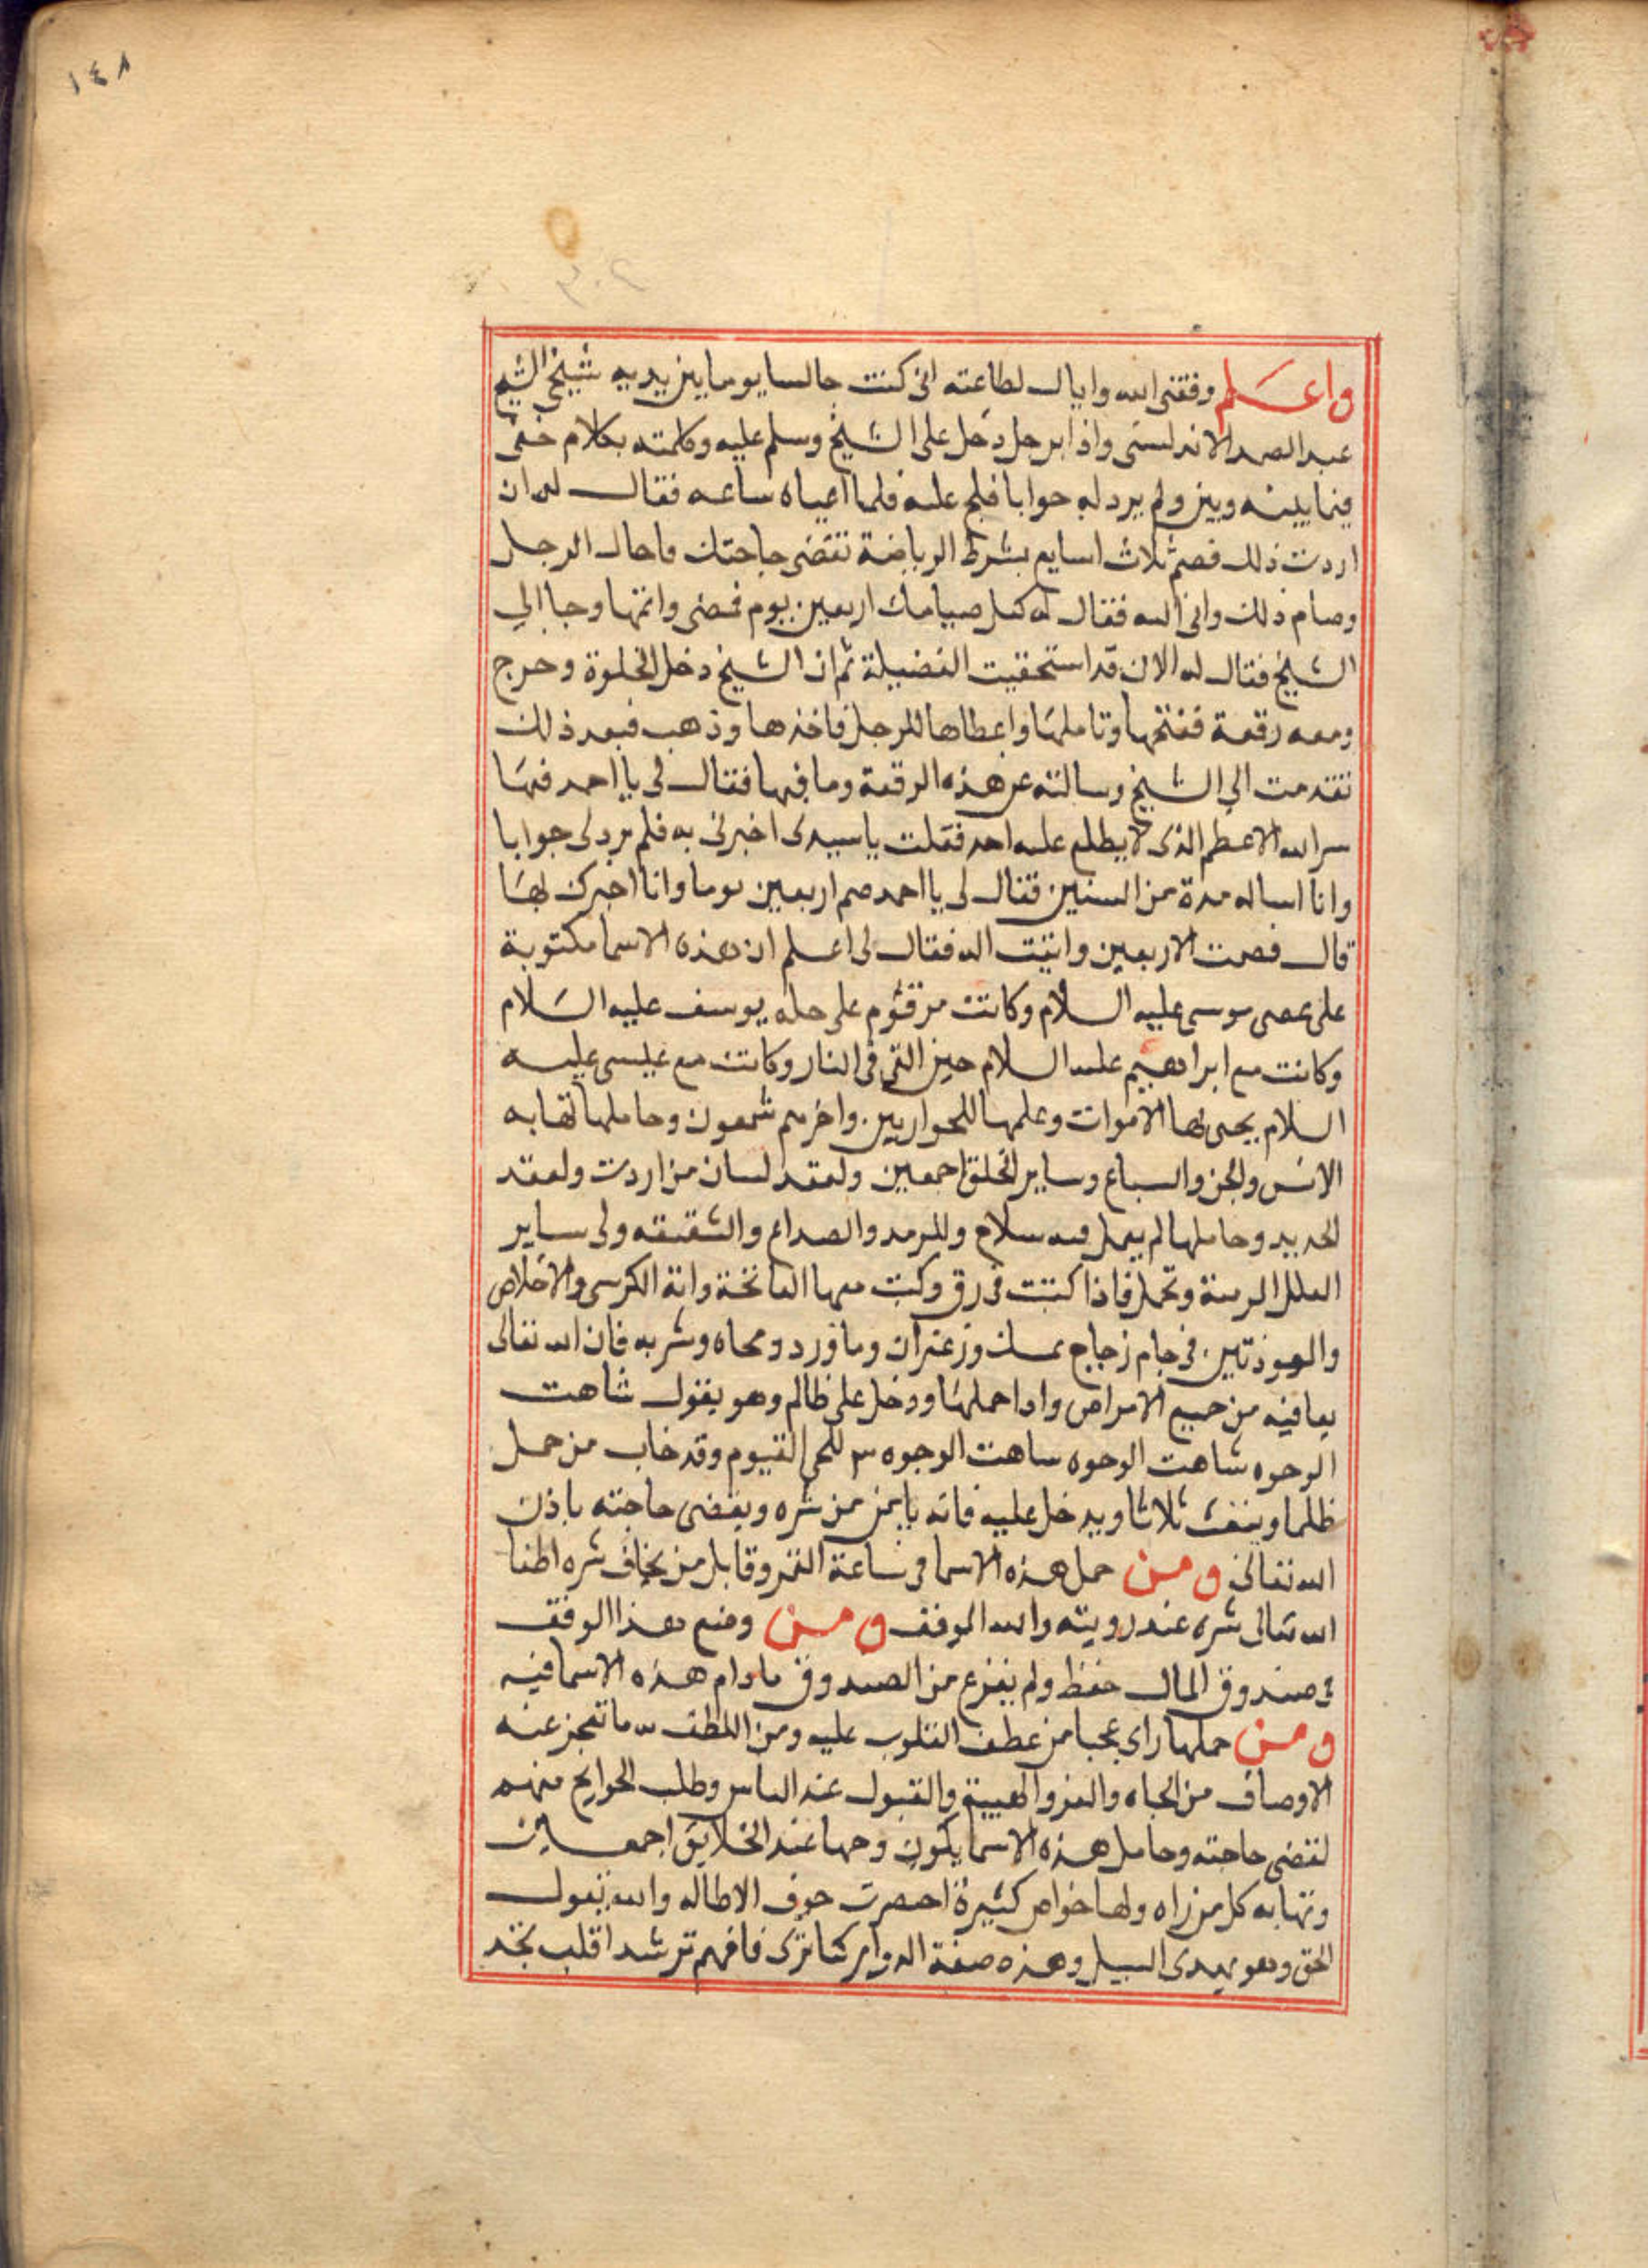 ١٤٨
واعلم وفقني الله واياك لطاعته اني كنت جالسا يوما بين يديه شيخي الشيخ
عبد الصمد الاندلسي واذا برجل دخل على الشيخ وسلم عليه وكلمته بكلام خفى
فيما بينه وبين ولم يرد له جوابا فلح عليه فلما اعياه ساعه فقال له ان
اردت ذلك فصم ثلاث اسابع بشرط الرياضة تقضى حاجتك فاحال الرجل
وصام ذلك واتى اليه فقال له كمل صيامك اربعين يوم فمضى واتمها وجا الي
الشيخ فقال له الان قد استحقيت الفضيلة ثم ان الشيخ دخل الخلوة وخرج
ومعه رقعة ففتحها وتاملها واعطاها للرجل فاخذها وذهب فبعد ذلك
تقدمت الي الشيخ وسالته عن هذه الرقعة وما فيها فقال لى يا احمد فيها
سر الله الاعظم الذى لا يطلع عليه احد فقلت يا سيدى اخبرني به فلم يرد لى جوابا
وانا اساله مدة من السنين فقال لى يا احمد صم اربعين يوما وانا اخبرك بها
قال فصمت الاربعين واتيت اليه فقال لى اعلم ان هذه الاسما مكتوبة
على عصى موسى عليه السلام وكانت مرقوم على حلة يوسف عليه السلام
وكانت مع ابراهيم عليه السلام حين القي فى النار وكانت مع عيسى عليه
السلام يحيى بها الاموات وعلمها للحواريين واخرهم شمعون وحاملها تهابه
الانس والجن والسباع وساير الخلق اجمعين ولعقد لسان من اردت ولعقد
الحديد وحاملها لم يعمل فيه سلاح وللرمد والصداع والشقيقه ولى ساير
العلل الردية وتحمل فاذا كتبت فى رق وكتب معها الفاتحة واية الكرسى والاخلاص
والمعوذتين فى جام زجاج بمسك وزعفران وما ورد ومحاه وشربه فان الله تعالى
يعافيه من جميع الامراض واذا حملها ودخل على ظالم وهو يقول شاهت
الوجوه شاهت الوجوه شاهت الوجوه ٣ للحي القيوم وقد خاب من حمل
ظلما وينفث ثلاثا ويدخل عليه فانه يايمن من شره ويقضى حاجته باذن
الله تعالى ومن حمل هذه الاسما فى ساعة القمر وقابل من يخاف شره اطفا
الله تعالى شره عند رويته والله الموفق ومن وضع هذا الوفق
فى صندوق المال حفظ ولم يفزع من الصندوق مادام هذه الاسما فيه
ومن حملها راى عجبا من عطف القلوب عليه ومن اللطف ما تعجز عنه
الاوصاف من الجاه والعز والهيبة والقبول عند الناس وطلب الحوايج منهم
لقضى حاجته وحامل هذه الاسما يكون وجها عند الخلايق اجمعين
وتهابه كل من راه ولها خواص كثيرة احصرت خوف الاطاله والله يقول
الحق وهو يهدى السبيل وهذه صفة الدواير كما ترى فافهم ترشد اقلب تجد